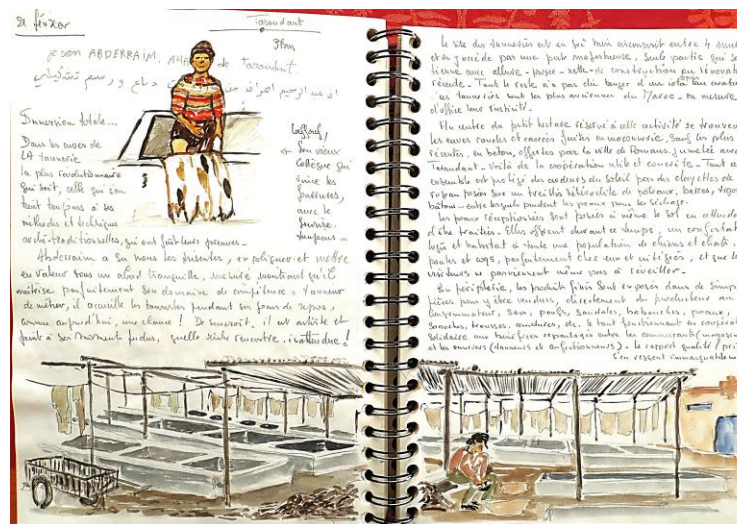 21 février
Taroudant
3 Pam
je son ABDERRAIM. de Taroudant.
ان عبد الرحيم دباغ و رسم تشكيلي
Immersion totale...
Dans les cuves de
LA tannerie
la plus révolutionnaire
qui soit, celle qui s'en
tient toujours à ses
méthodes et techniques
archi-traditionnelles, qui ont fait leurs preuves.
un vieux
collègue qui
rince les
fourrures,
avec le
sourire,
toujours
Abderraim a su nous les présenter, expliquer et mettre
en valeur sous un abord tranquille, mesuré montrant qu'il
maîtrise parfaitement son domaine de compétence. Tanneur
de métier, il accueille les touristes pendant ses jours de repos,
comme aujourd'hui, une chance ! De surcroît, il est artiste et
peint à ses moments perdus, quelle rencontre, inattendue !
Le site des tanneries est en fait bien circonscrit entre 4 murs
et précédé par une porte majestueuse, seule partie qui se
tienne avec allure - de construction ou rénovation
récente. Tout le reste n'a pas dû bouger d'un iota
les tanneries sont les plus anciennes du Maroc
d'office leur rusticité.
Au centre du petit hectare réservé à cette activité se trouvent
les cuves rondes et carrées faites en maçonnerie, sauf les plus
récentes, en béton, offertes par la ville de Romans, jumelée avec
Taroudant. Voilà de la coopération utile et concrète. Tout cet
ensemble est protégé des ardeurs du soleil par des clayettes de
roseau posées sur un treillis hétéroclite de poteaux, barres,
bâtons - entre lesquels pendent les peaux pour le séchage.
Les peaux réceptionnées sont posées à même le sol en attendant
d'être traitées. Elles offrent durant ce temps, un confortable
logis et habitat à toute une population de chiens et chats,
poules et coqs, parfaitement chez eux et mitigés, et que les
visiteurs ne parviennent même pas à réveiller.
En périphérie, les produits finis sont exposés dans de simples
pièces pour y être vendus, directement du producteur au
consommateur, sacs, poufs, sandales, babouches, peaux,
sacoches, trousses, ceintures, etc. le tout fonctionnant en coopérative
solidaire aux bénéfices repartagés entre les commerçants
et les ouvriers (tanneurs et confectionneurs). Le rapport qualité / prix
s'en ressent immanquablement